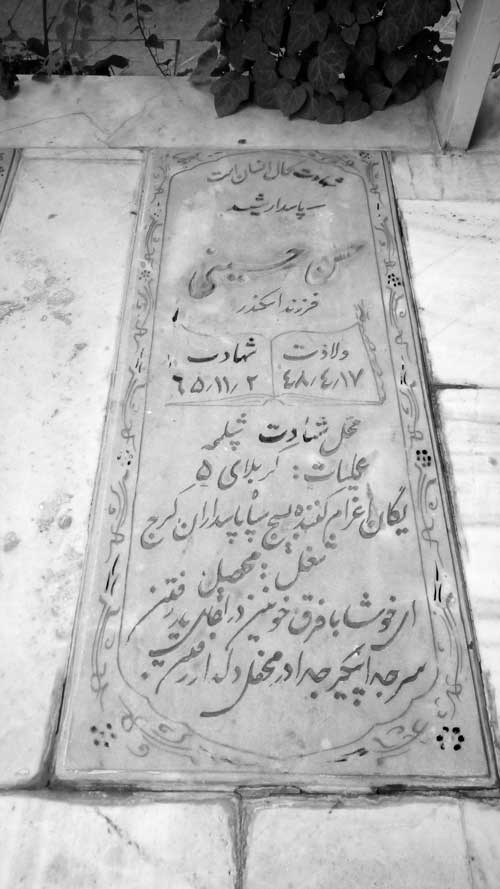 شهادت کمال انسان است
پاسدار شهید
حسن حسینی
فرزند اسکندر
ولادت شهادت
۴۸/۴/۱۷ ۶۵/۱۱/۲
محل شهادت شلمچه
عملیات: کربلای ۵
یگان اعزام کننده بسیج سپاه پاسداران کرج
شغل: محصل
ای خوشا با فرق خونین در لقای یار رفتن
سر جدا پیکر جدا در محفل دلدار رفتن